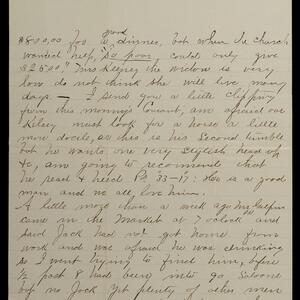 $800.00 for a good dinner, but when the church
wanted help, "so poor could only give
$25.00." Mrs Keeney the widow is very
low do not think she will live many
days — I send you a little clipping
from this morning's Courant, am afraid our
Kelsey must look for a horse a little
more docile, as this is his second tumble
but he wants one very stylish head up
&c, am going to recommend that
he read & heed Ps 33-17: He is a good
man and we all love him.
A little more than a week ago Mr
came in the Market at 7 o'clock and
said Jack had not got home from
work and was afraid he was drinking
so I went trying to find him, before
½ past 8 had been into 90 Saloons
but no Jack yet plenty of other men